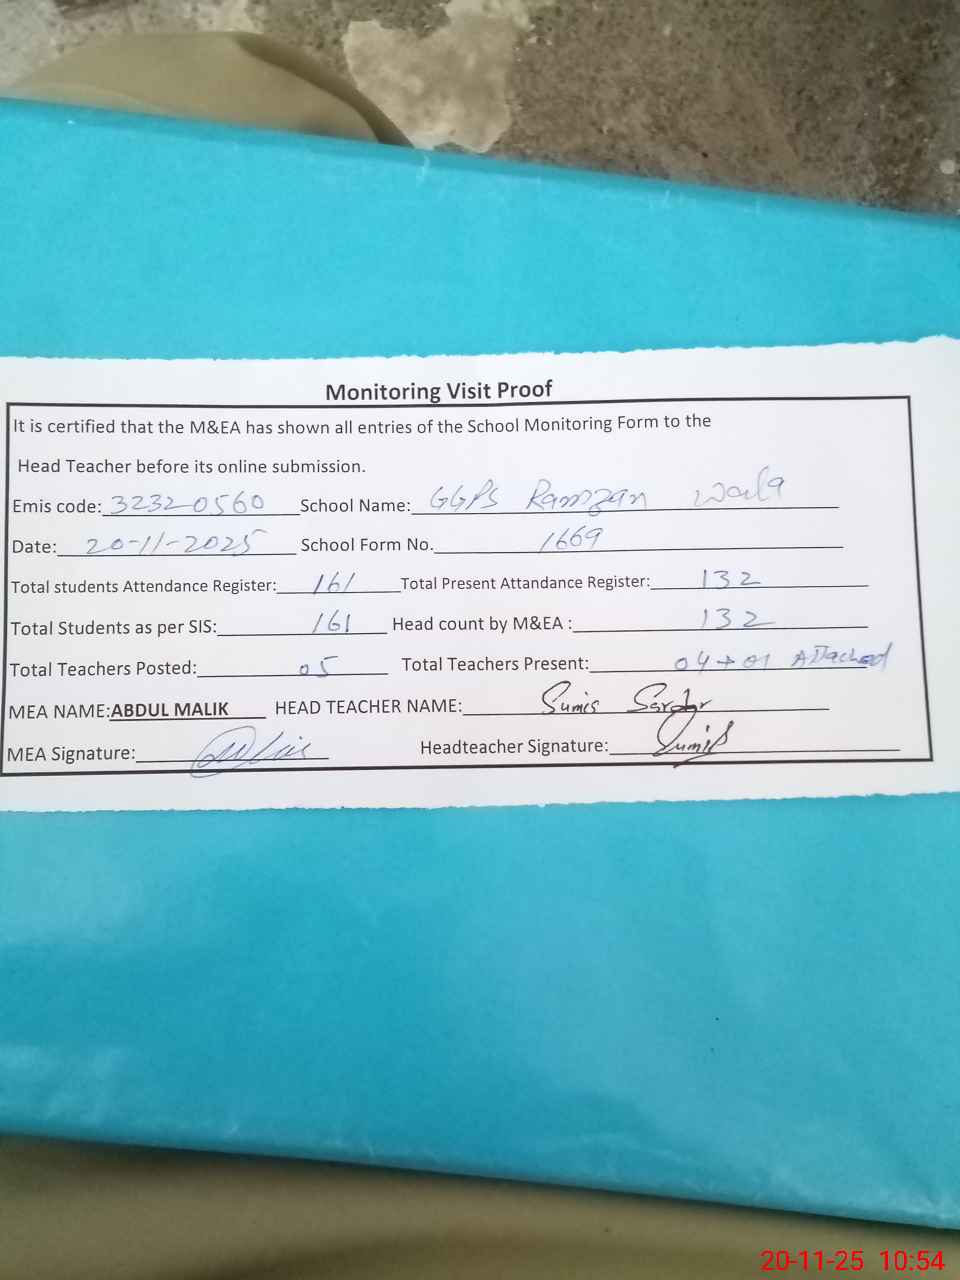 Monitoring Visit Proof
It is certified that the M&EA has shown all entries of the School Monitoring Form to the
Head Teacher before its online submission.
Emis code: 32320560 School Name: GGPS Ramzan Wala
Date: 20-11-2025 School Form No. 1669
Total students Attendance Register: 161 Total Present Attandance Register: 132
Total Students as per SIS: 161 Head count by M&EA : 132
Total Teachers Posted: 05 Total Teachers Present: 04+01 Attached
MEA NAME: ABDUL MALIK HEAD TEACHER NAME: Sumis Sardar
MEA Signature: Headteacher Signature:
20-11-25 10:54